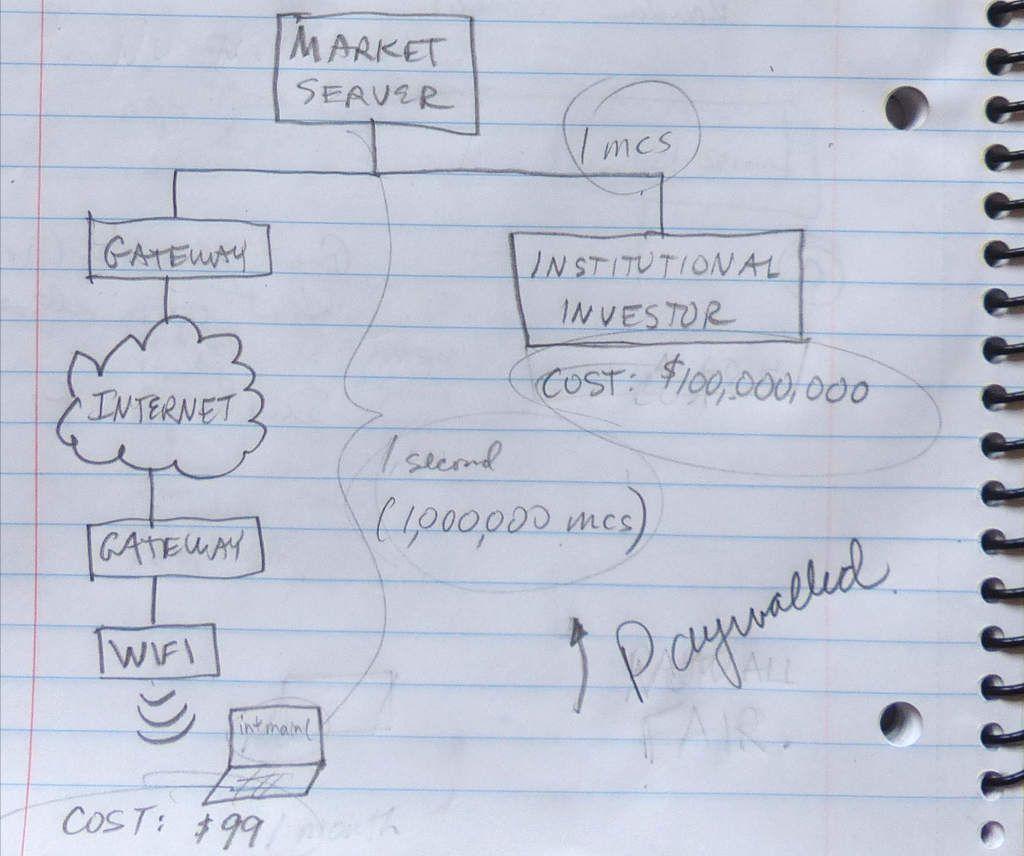 MARKET
SERVER
1 mcs
GATEWAY
INSTITUTIONAL
INVESTOR
COST: $100,000,000
INTERNET
1 second
(1,000,000 mcs)
GATEWAY
Paywalled
WIFI
int main(
COST: $99 / month